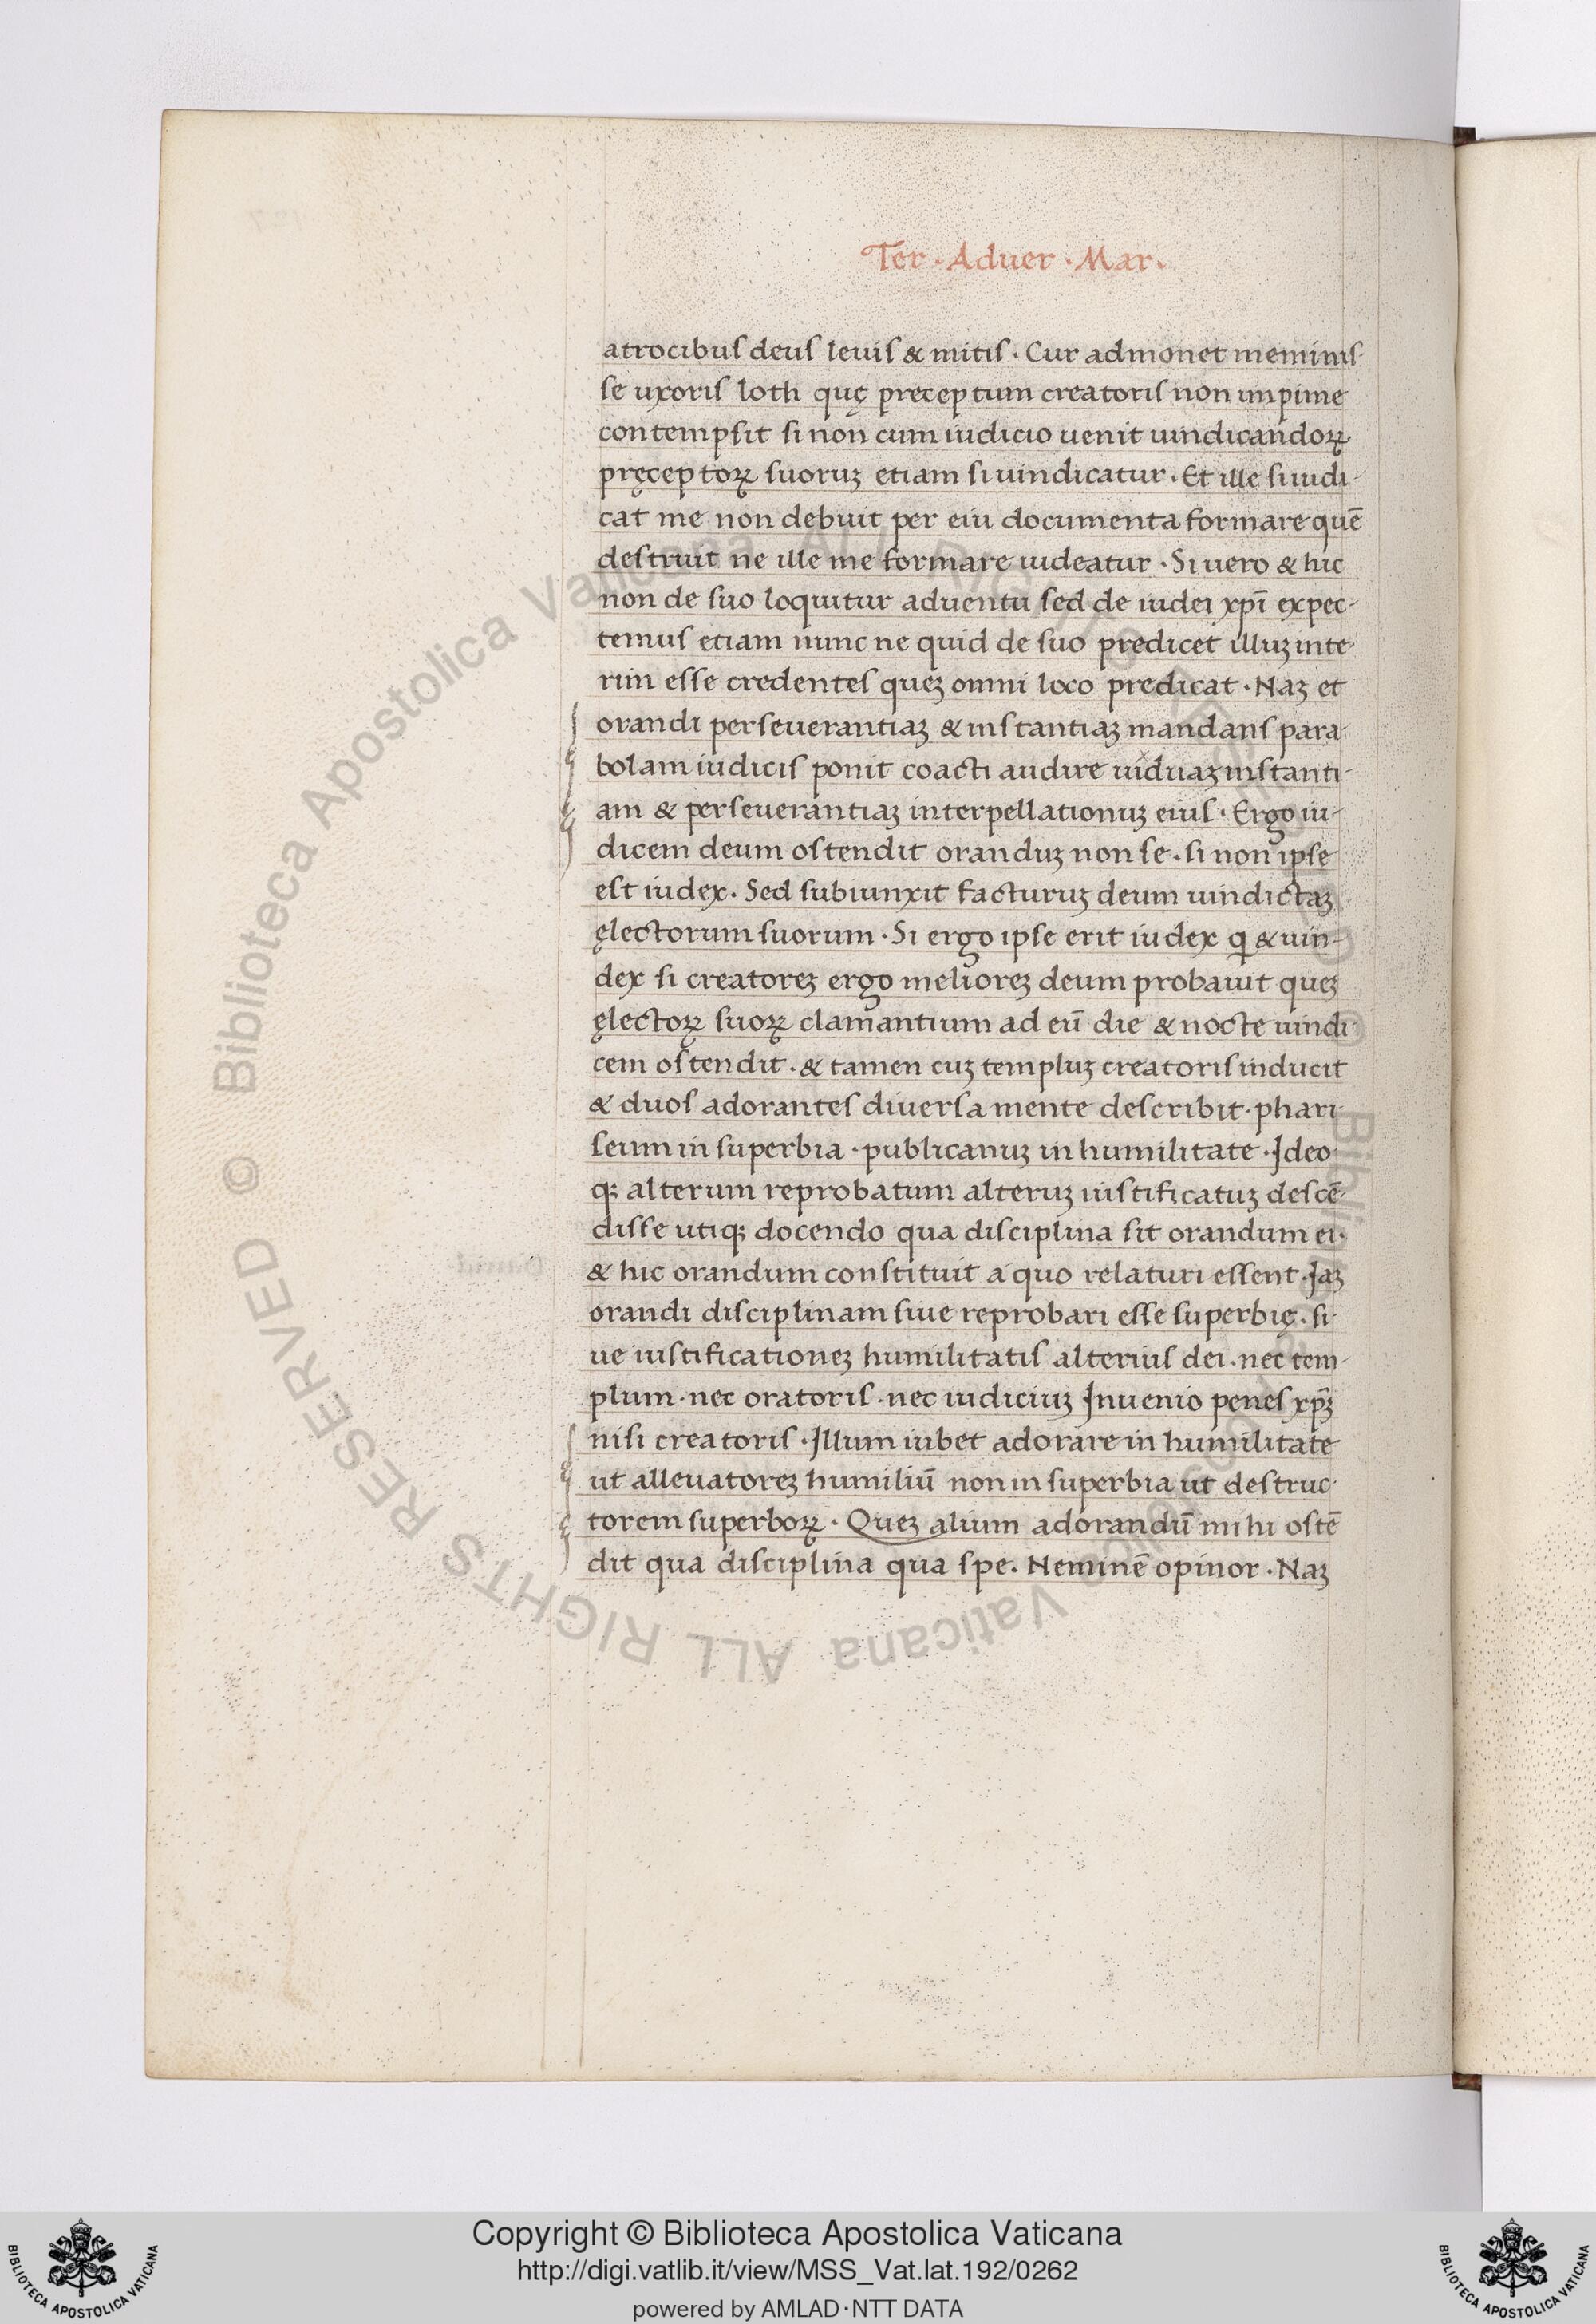 Ter · Aduer · Mar ·
atrocibuſ deuſ leuiſ & mitiſ · Cur admonet meminiſ-
ſe uxoriſ loth quę preceptum creatoriſ non impune
contempſit ſi non cum iudicio uenit uindicandoꝝ
pręceptoꝝ ſuoruꝫ etiam ſi uindicatur · Et ille ſi iudi-
cat me non debuit per eiu documenta formare quē
deſtruit ne ille me formare uideatur · Si uero & hic
non de ſuo loquitur aduentu ſed de iudei xpī expec-
temuſ etiam nunc ne quid de ſuo predicet illuꝫ inte-
rim eſſe credenteſ queꝫ omni loco predicat · Naꝫ et
orandi perſeuerantiaꝫ & inſtantiaꝫ mandanſ para-
bolam iudiciſ ponit coacti audire uiduaꝫ inſtanti-
am & perſeuerantiaꝫ interpellationuꝫ eiuſ · Ergo iu-
dicem deum oſtendit oranduꝫ non ſe · ſi non ipſe
eſt iudex · Sed ſubiunxit facturuꝫ deum uindictaꝫ
ęlectorum ſuorum · Si ergo ipſe erit iudex qi & uin-
dex ſi creatoreꝫ ergo melioreꝫ deum probauit queꝫ
ęlectoꝝ ſuoꝝ clamantium ad eū die & nocte uindi-
cem oſtendit · & tamen cuꝫ templuꝫ creatoriſ inducit
& duoſ adoranteſ diuerſa mente deſcribit · phari-
ſeum in ſuperbia · publicanuꝫ in humilitate · Ideo-
qꝫ alterum reprobatum alteruꝫ iuſtificatuꝫ deſcē-
diſſe utiqꝫ docendo qua diſciplina ſit orandum ei ·
& hic orandum conſtituit a quo relaturi eſſent · Jaꝫ
orandi diſciplinam ſiue reprobari eſſe ſuperbię · ſi-
ue iuſtificationeꝫ humilitatiſ alteriuſ dei · nec tem-
plum · nec oratoriſ · nec iudiciuꝫ Inuenio peneſ xpꝫ
niſi creatoriſ · Illum iubet adorare in humilitate
ut alleuatoreꝫ humiliū non in ſuperbia ut deſtruc-
torem ſuperboꝝ · Queꝫ alium adorandū mihi oſtē
dit qua diſciplina qua ſpe · Neminē opinor · Naꝫ
© Biblioteca Apostolica Vaticana ALL RIGHTS RESERVED
© Biblioteca Apostolica Vaticana ALL RIGHTS RESERVED
Copyright © Biblioteca Apostolica Vaticana
http://digi.vatlib.it/view/MSS_Vat.lat.192/0262
powered by AMLAD·NTT DATA
BIBLIOTECA APOSTOLICA VATICANA
BIBLIOTECA APOSTOLICA VATICANA